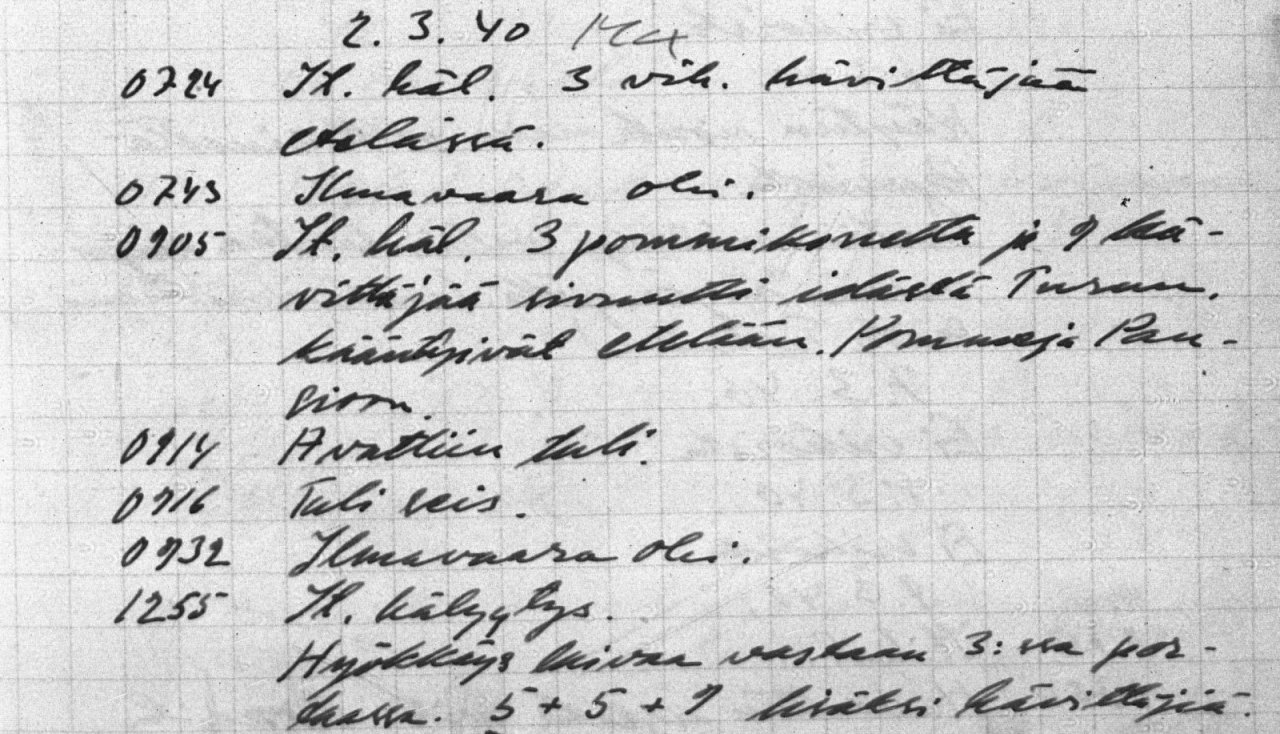 2. 3. 40
0724 It. häl. 3 vih. hävittäjää
etelässä.
0743 Ilmavaara ohi.
0905 It. häl. 3 pommikonetta ja 9 hä-
vittäjää sivuutti idästä Turun.
Kääntyivät etelään. Pommeja Pan-
sioon.
0914 Avattiin tuli.
0916 Tuli seis.
0932 Ilmavaara ohi.
1255 It. hälyytys.
Hyökkäys laivaa vastaan 3:ssa por-
taassa. 5 + 5 + 9 lisäksi hävittäjiä.